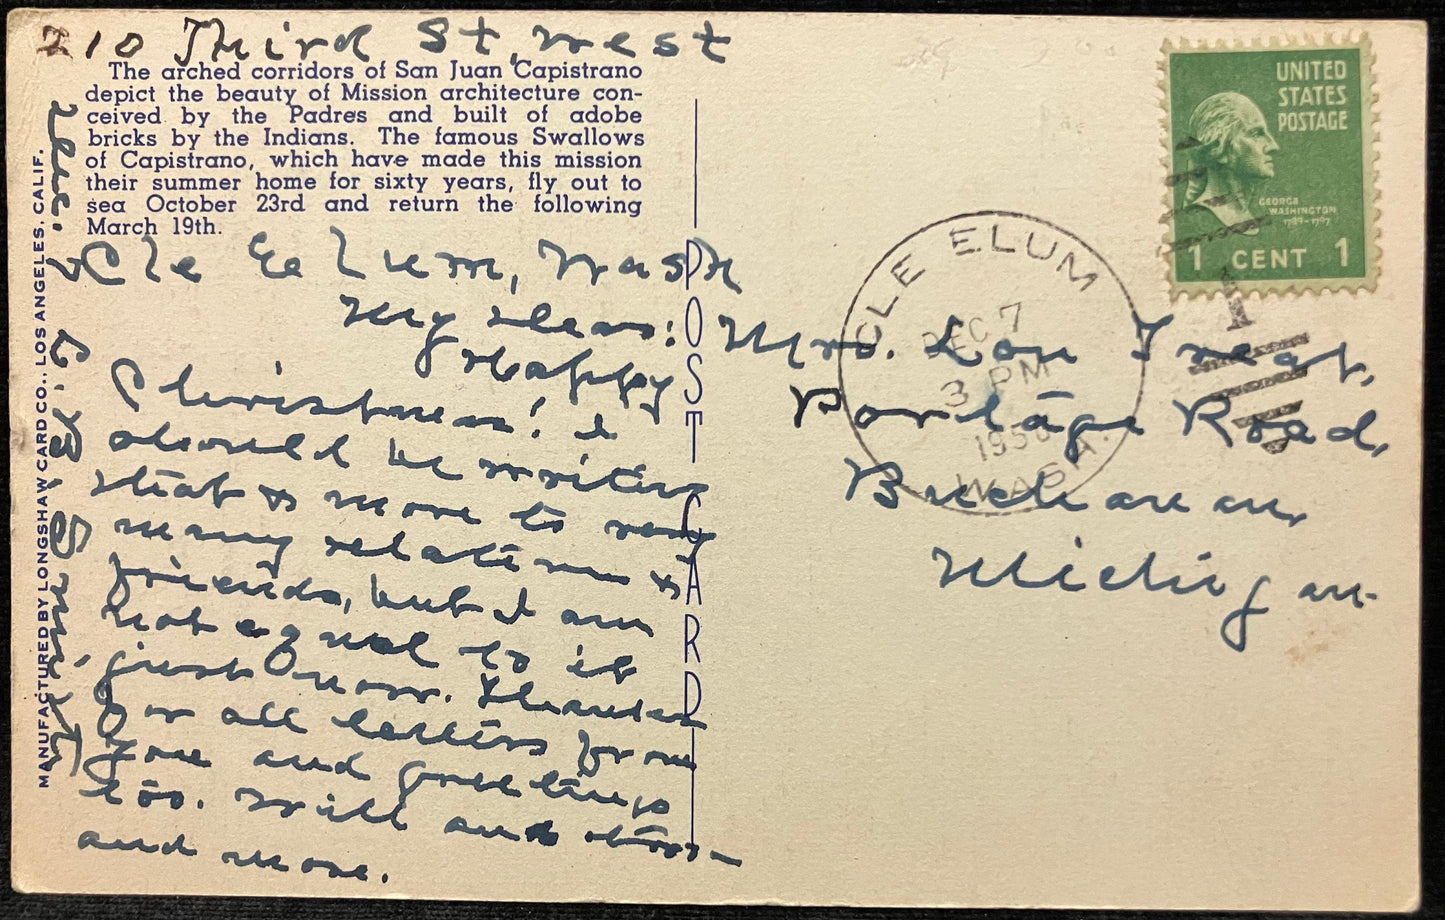 210 Third St, West
The arched corridors of San Juan Capistrano
depict the beauty of Mission architecture con-
ceived by the Padres and built of adobe
bricks by the Indians. The famous Swallows
of Capistrano, which have made this mission
their summer home for sixty years, fly out to
sea October 23rd and return the following
March 19th.
Cle Elum, Wash
My dear:
Happy
Christmas! I
should be writing
that & more to very
many relatives &
friends, but I am
not equal to it
just now. Thanks
for all letters from
you and greetings
too. Will and
and more.
Smith
MANUFACTURED BY LONGSHAW CARD CO., LOS ANGELES, CALIF.
POST CARD
UNITED
STATES
POSTAGE
GEORGE
WASHINGTON
1789-1797
1 CENT 1
CLE ELUM
DEC 7
3 PM
1950
WASH.
Mrs. Lon Treat,
Portage Road,
Buchanan,
Michigan